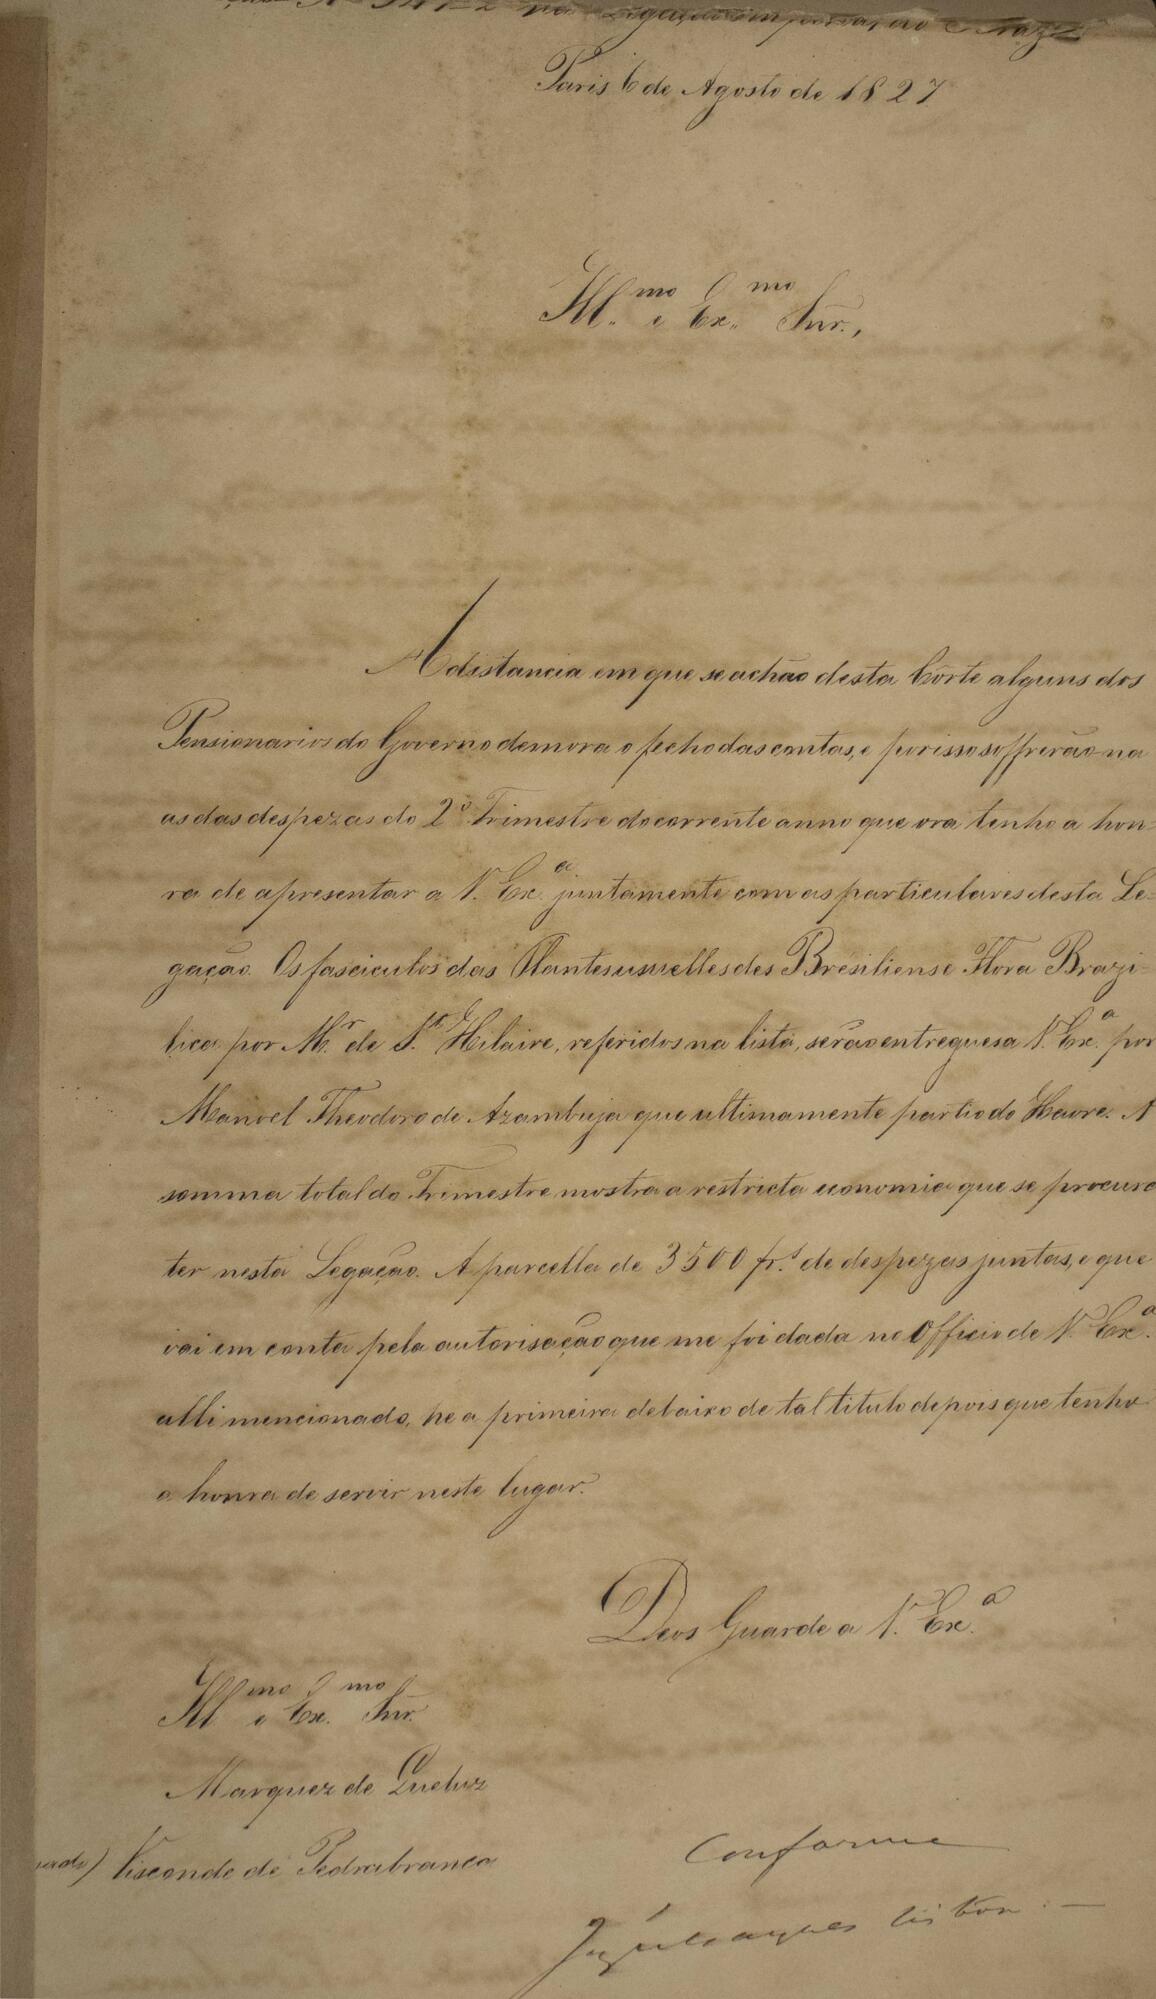 Paris 6 de Agosto de 1827
Ill.mo e Ex.mo Snr.,
A distancia em que se achão desta Côrte alguns dos
Pensionarios do Governo demora o fecho das contas, e por isso soffrerão na
as das despezas do 2º Trimestre do corrente anno que ora tenho a hon-
ra de apresentar a V. Ex.a juntamente com as particulares desta Le-
gação. Os fasciculos das Plantes usuelles des Bresiliens e Flora Brazi-
lica por M.r de S.t Hilaire, referidos na lista, serão entregues a V. Ex.a por
Manoel Theodoro de Azambuja que ultimamente partio do Havre. A
somma total do Trimestre mostra a restricta economia que se procura
ter nesta Legação. A parcella de 3500 fr.s de despezas juntas, e que
vai em conta pela autorisação que me foi dada no Officio de V. Ex.a
alli mencionado, he a primeira debaixo de tal titulo depois que tenho
a honra de servir neste lugar.
Deos Guarde a V. Ex.a
Ill.mo e Ex.mo Snr.
Marquez de Queluz
Visconde de Pedrabranca
Conforme